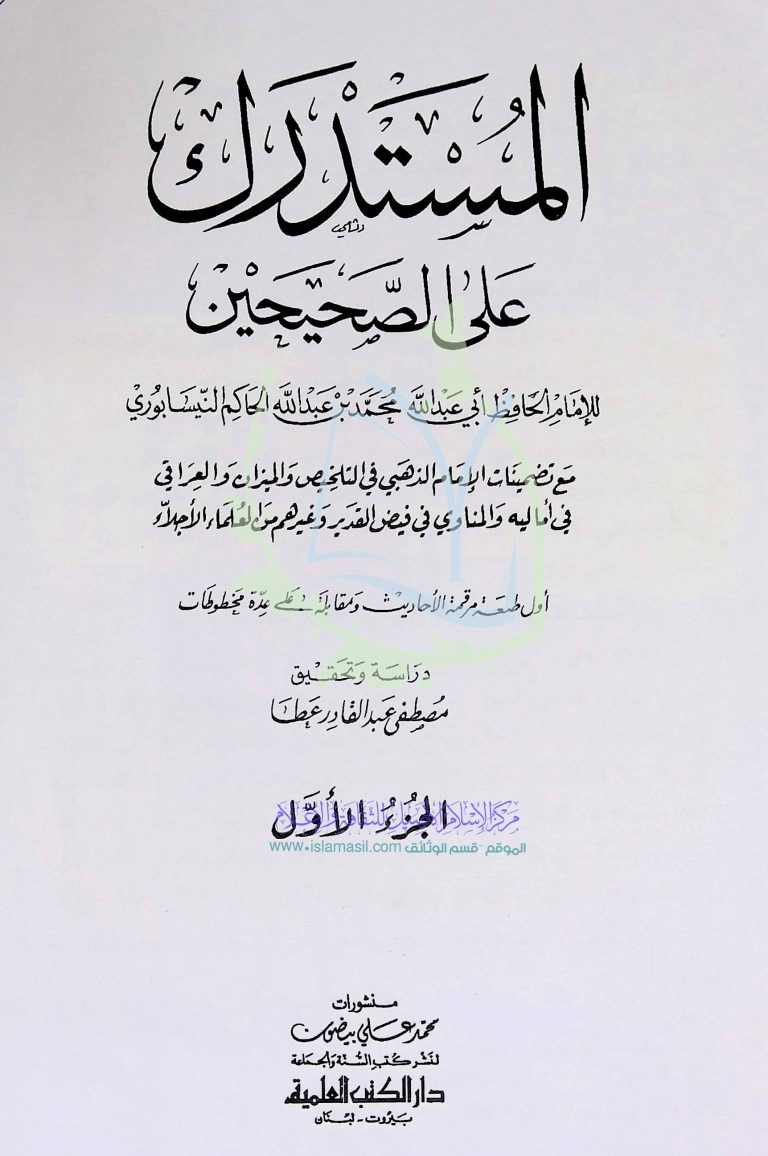 المُسْتَدْرَك
عَلَى الصَّحِيحَيْن
للإمَام الحَافِظ أبي عَبْدالله مُحَمَّد بْن عَبْدالله الحَاكِم النّيسَابُوري
مَع تضمينَات الإمَام الذهبي في التلخيص وَالميزان وَالعِرَاقي
في أماليه وَالمناوي في فيض القدير وَغيرهم مَن العُلمَاء الأجلاّء
أول طبعَة مرقمة الأحاديث وَمقابلة عَلى عِدّة مخطوطَات
دِرَاسَة وَتحقيق
مُصْطفى عَبد القادِر عَطا
الجُزءُ الأوَّل
مركز الإسلام الأصيل للثقافة والإعلام
الموقع - قسم الوثائق www.islamasil.com
منشورات
محمّد عَلي بيضون
لنَشر كُتب السُّنّة وَالجمَاعة
دار الكتب العلمية
بَيروت - لبنَان